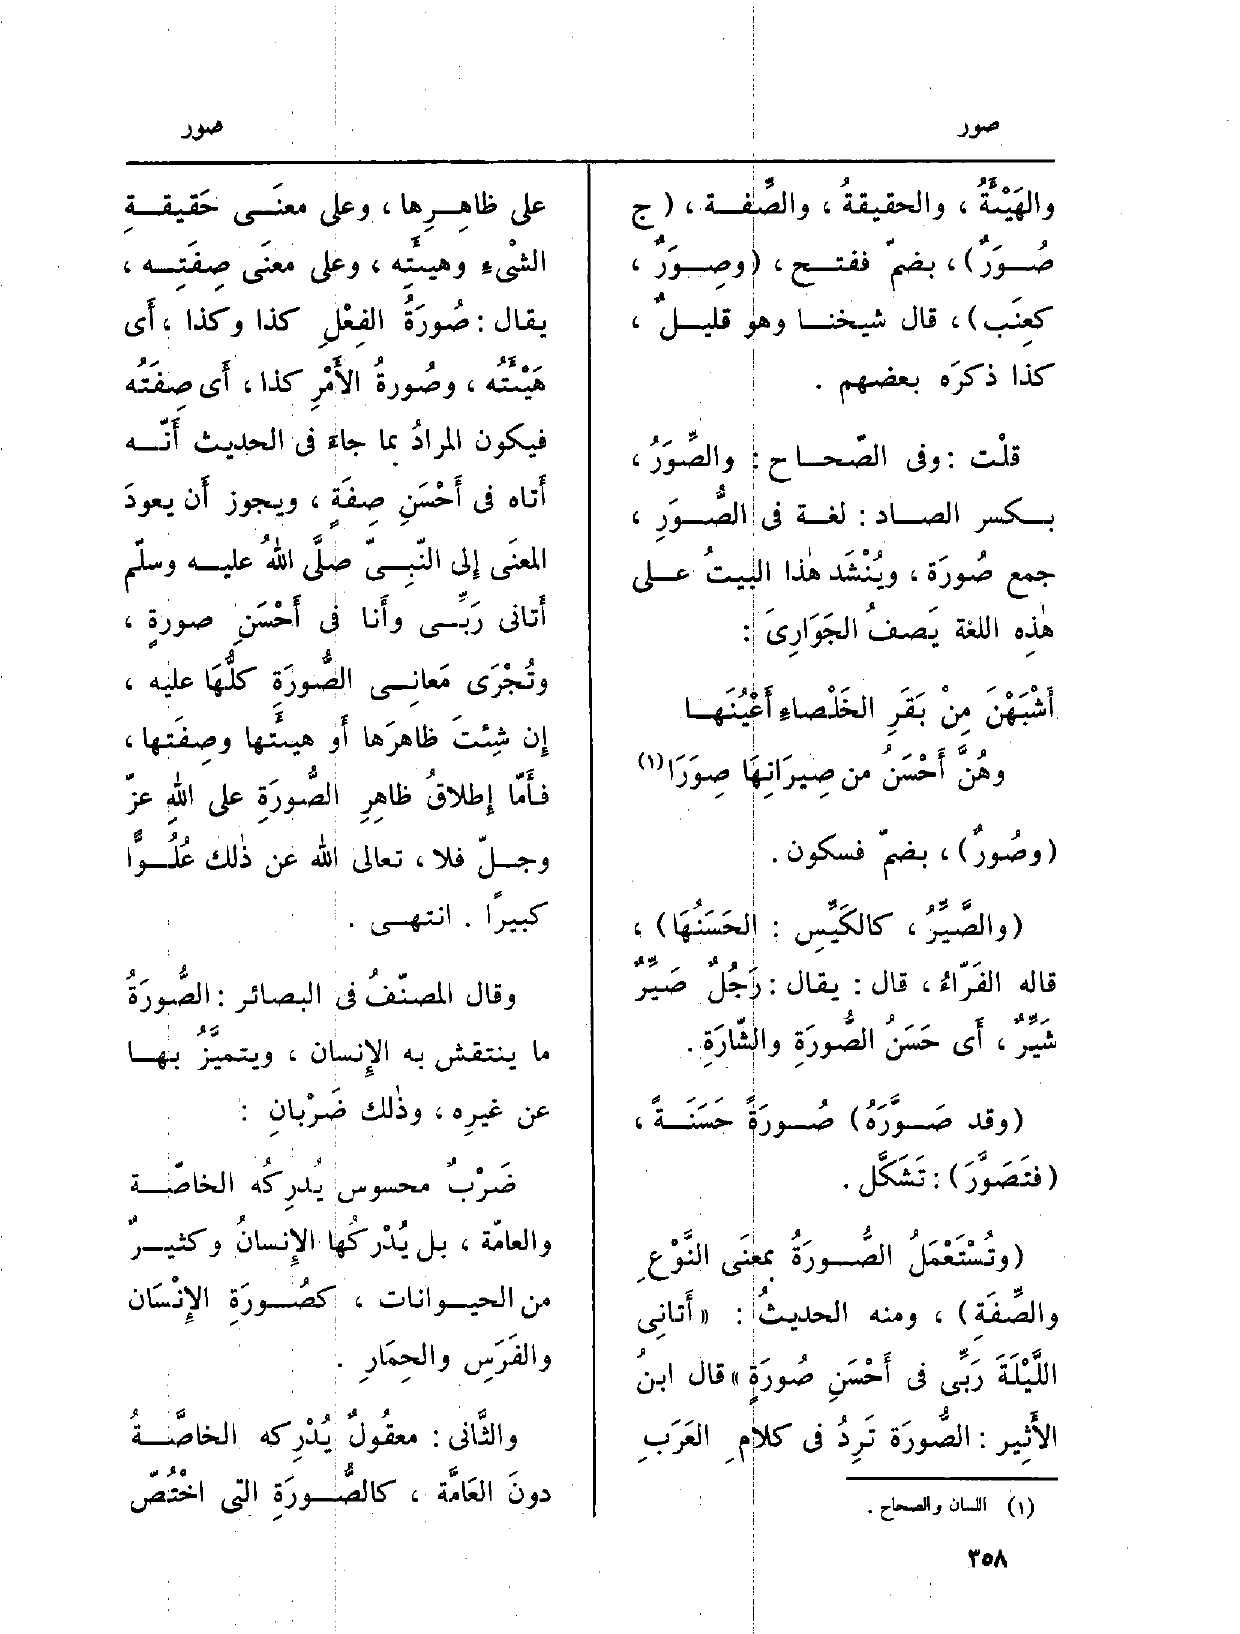 صور
صور
والهَيْئَةُ ، والحقيقةُ ، والصِّفة ، ( ج
صُورٌ) ، بضمّ ففتح ، (وصِوَرٌ ،
كعِنَب) ، قال شيخنا وهو قليلٌ ،
كذا ذكَره بعضهم .
قلْت : وفى الصّحاح : والصِّوَرُ ،
بكسر الصاد : لغة فى الصُّوَرِ ،
جمع صُورَة ، ويُنْشَد هٰذا البيتُ على
هٰذِه اللغة يَصفُ الجَوَارِىَ :
أَشْبَهْنَ مِنْ بَقَرِ الخَلْصاءِ أَعْيُنَها
وهُنَّ أَحْسَنُ من صِيرَانِهَا صِوَرَا (١)
(وصُورٌ) ، بضمّ فسكون .
(والصَّيِّرُ ، كالكَيِّس : الحَسَنُهَا) ،
قاله الفَرّاءُ ، قال : يقال : رَجُلٌ صَيِّرٌ
شَيِّرٌ ، أَى حَسَنُ الصُّورَةِ والشّارَةِ .
(وقد صَوَّرَهُ) صُورَةً حَسَنَةً ،
(فتَصَوَّرَ) : تَشَكَّل .
(وتُسْتَعْمَلُ الصُّورَةُ بمعْنَى النَّوْعِ
والصِّفَة) ، ومنه الحديثُ : « أَتانِى
اللَّيْلَةَ رَبِّى فى أَحْسَنِ صُورَةٍ » قال ابنُ
الأَثِير : الصُّورَة تَرِدُ فى كلامِ العَرَبِ
(١) اللسان والصحاح .
على ظاهِرِها ، وعلى معنَى حَقيقةِ
الشْىءِ وهيئَتِه ، وعلى معنَى صِفَتِه ،
يقال : صُورَةُ الفِعْلِ كذا وكذا ، أَى
هَيْئَتُه ، وصُورةُ الأَمْرِ كذا ، أَى صِفَتُه
فيكون المرادُ بما جاءَ فى الحديث أَنّه
أَتاه فى أَحْسَنِ صِفَةٍ ، ويجوز أَن يعودَ
المعنَى إِلى النّبِىّ صلَّى اللهُ عليه وسلّم
أَتانى رَبِّى وأَنا فى أَحْسَنِ صورةٍ ،
وتُجْرَى مَعانِى الصُّورَةِ كلُّهَا عليه ،
إِن شِئتَ ظاهرَها أَو هيئَتَها وصِفَتها ،
فأَمّا إِطلاقُ ظاهِرِ الصُّورَةِ على اللهِ عزّ
وجلّ فلا ، تعالى الله عن ذٰلك عُلُوًّا
كبيرًا . انتهى .
وقال المصنّفُ فى البصائر : الصُّورَةُ
ما ينتقش به الإِنسان ، ويتميَّزُ بها
عن غيرِه ، وذٰلك ضَرْبانِ :
ضَرْبٌ محسوس يُدرِكُه الخاصّة
والعامّة ، بل يُدْرِكُها الإِنسانُ وكثيرٌ
من الحيوانات ، كصُورَةِ الإِنْسَان
والفَرَسِ والحِمَارِ .
والثَّانى : معقولٌ يُدْرِكه الخاصَّةُ
دونَ العَامَّة ، كالصُّورَةِ التى اخْتُصّ
٣٥٨